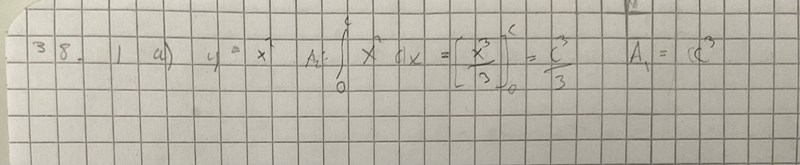 38. 1 a) y = x² A₂ = ∫₀ᶜ x² dx = [x³/3]₀ᶜ = c³/3 A₁ = c³